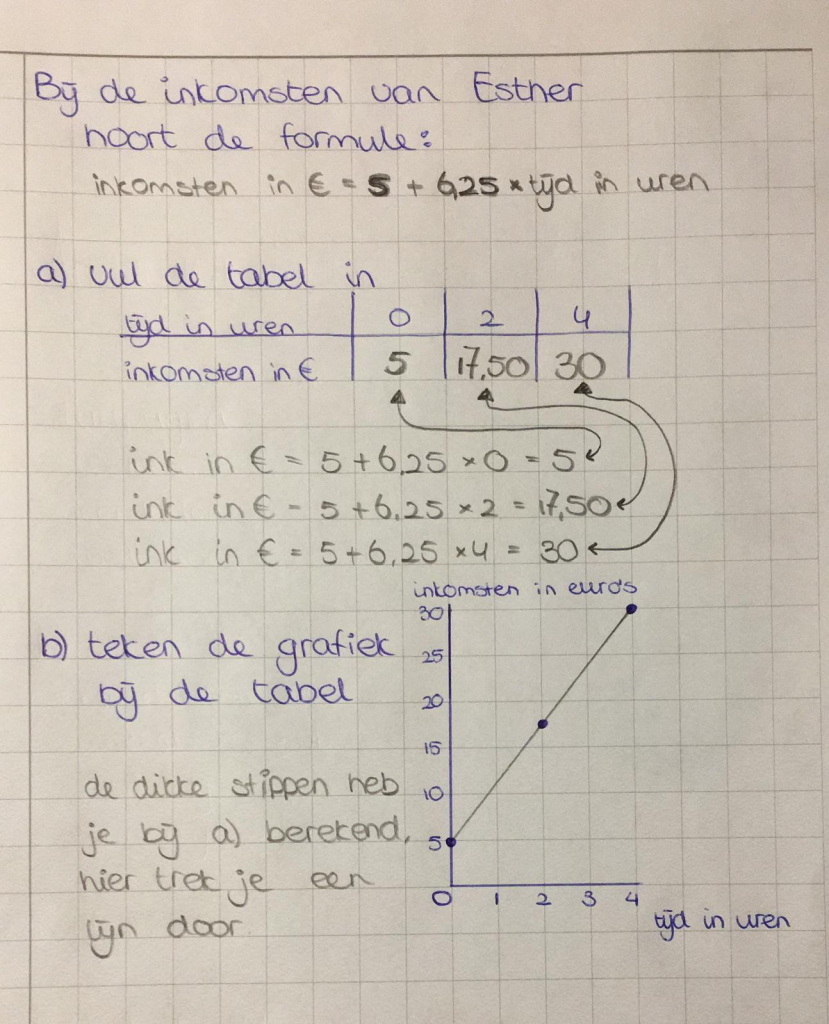 Bij de inkomsten van Esther
hoort de formule:
inkomsten in € = 5 + 6,25 × tijd in uren
a) vul de tabel in
tijd in uren 0 2 4
inkomsten in € 5 17,50 30
ink in € = 5 + 6,25 × 0 = 5
ink in € = 5 + 6,25 × 2 = 17,50
ink in € = 5 + 6,25 × 4 = 30
b) teken de grafiek
bij de tabel
de dikke stippen heb
je bij a) berekend,
hier trek je een
lijn door
inkomsten in euro's
30
25
20
15
10
5
0 1 2 3 4
tijd in uren